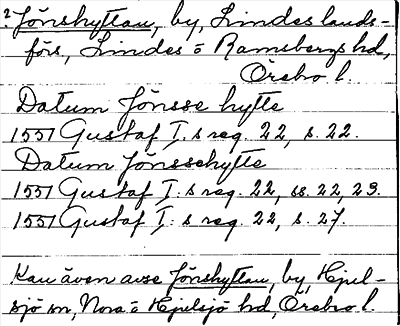 ? Jönshyttan, by, Lindes lands-
förs, Lindes o Ramsbergs hd,
Örebro l.
Datum Jönsse hytte
1551 Gustaf I:s reg. 22, s. 22.
Datum Jönssehytte
1551 Gustaf I:s reg. 22, ss. 22, 23.
1551 Gustaf I:s reg. 22, s. 27.
Kan även avse Jönshyttan, by, Hjul-
sjö sn, Nora o Hjulsjö hd, Örebro l.